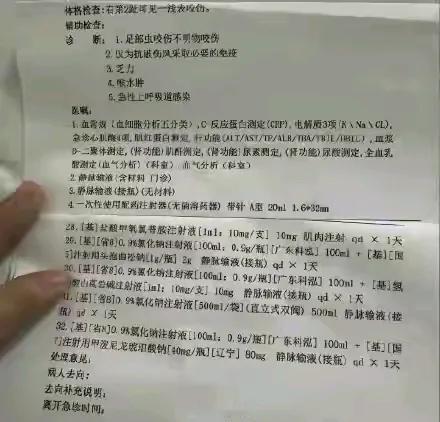 体格检查:右第2趾可见一浅表咬伤。
辅助检查:
诊 断: 1.足部虫咬伤不明物咬伤
2.仅为抗破伤风采取必要的免疫
3.乏力
4.喉水肿
5.急性上呼吸道感染
医嘱:
1.血常规(血细胞分析五分类),C-反应蛋白测定(CRP),电解质3项(K\Na\CL),
急诊心肌酶4项,肌红蛋白测定,肝功能(ALT/AST/TP/ALB/TBA/TBIL/DBIL),血浆
D-二聚体测定,(肾功能)肌酐测定,(肾功能)尿素测定,(肾功能)尿酸测定,全血乳
酸测定(血气分析)(科室) 血气分析(科室)
2.静脉输液(含材料 门诊)
3.静脉输液(接瓶)(无材料)
4.一次性使用配药注射器(无菌溶药器) 带针 A型 20ml 1.6*32mm
28.[基]盐酸甲氧氯普胺注射液[1ml: 10mg/支] 10mg 肌肉注射 qd × 1天
29.[基][省B]0.9%氯化钠注射液[100ml: 0.9g/瓶][广东科泓] 100ml + [基][国
5]注射用头孢曲松钠[1g/瓶] 2g 静脉输液(接瓶) qd × 1天
30.[基][省B]0.9%氯化钠注射液[100ml: 0.9g/瓶][广东科泓] 100ml + [基]氢
溴山莨菪碱注射液[1ml: 10mg/支] 10mg 静脉输液(接瓶) qd × 1天
31.[基][省B]0.9%氯化钠注射液[500ml/袋](直立式双阀) 500ml 静脉输液(接
瓶) qd × 1天
32.[基][省B]0.9%氯化钠注射液[100ml: 0.9g/瓶][广东科泓] 100ml + [基][国
]注射用甲泼尼龙琥珀酸钠[40mg/瓶][辽宁] 80mg 静脉输液(接瓶) qd × 1天
处理意见:
病人去向:
去向补充说明:
离开急诊时间: